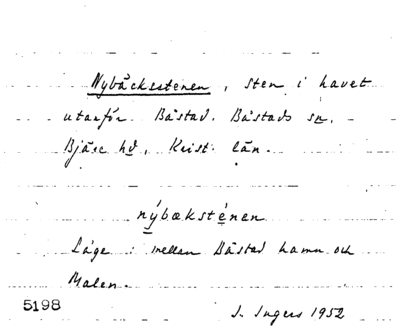 Nybäcksstenen, sten i havet
utanför Båstad. Båstads sn,
Bjäre hd, Krist. län.
nýbæksténen
Läge: mellan Båstad hamn och
Malen.
5198
I. Ingers 1952